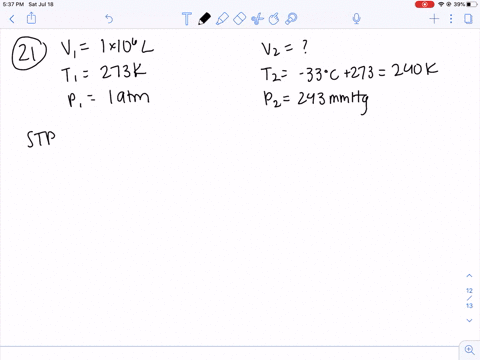 5:37 PM Sat Jul 18
39%
21
V₁ = 1×10⁶ L
T₁ = 273K
P₁ = 1 atm
STP
V₂ = ?
T₂ = -33°C +273 = 240K
P₂ = 243 mmHg
12
/
13